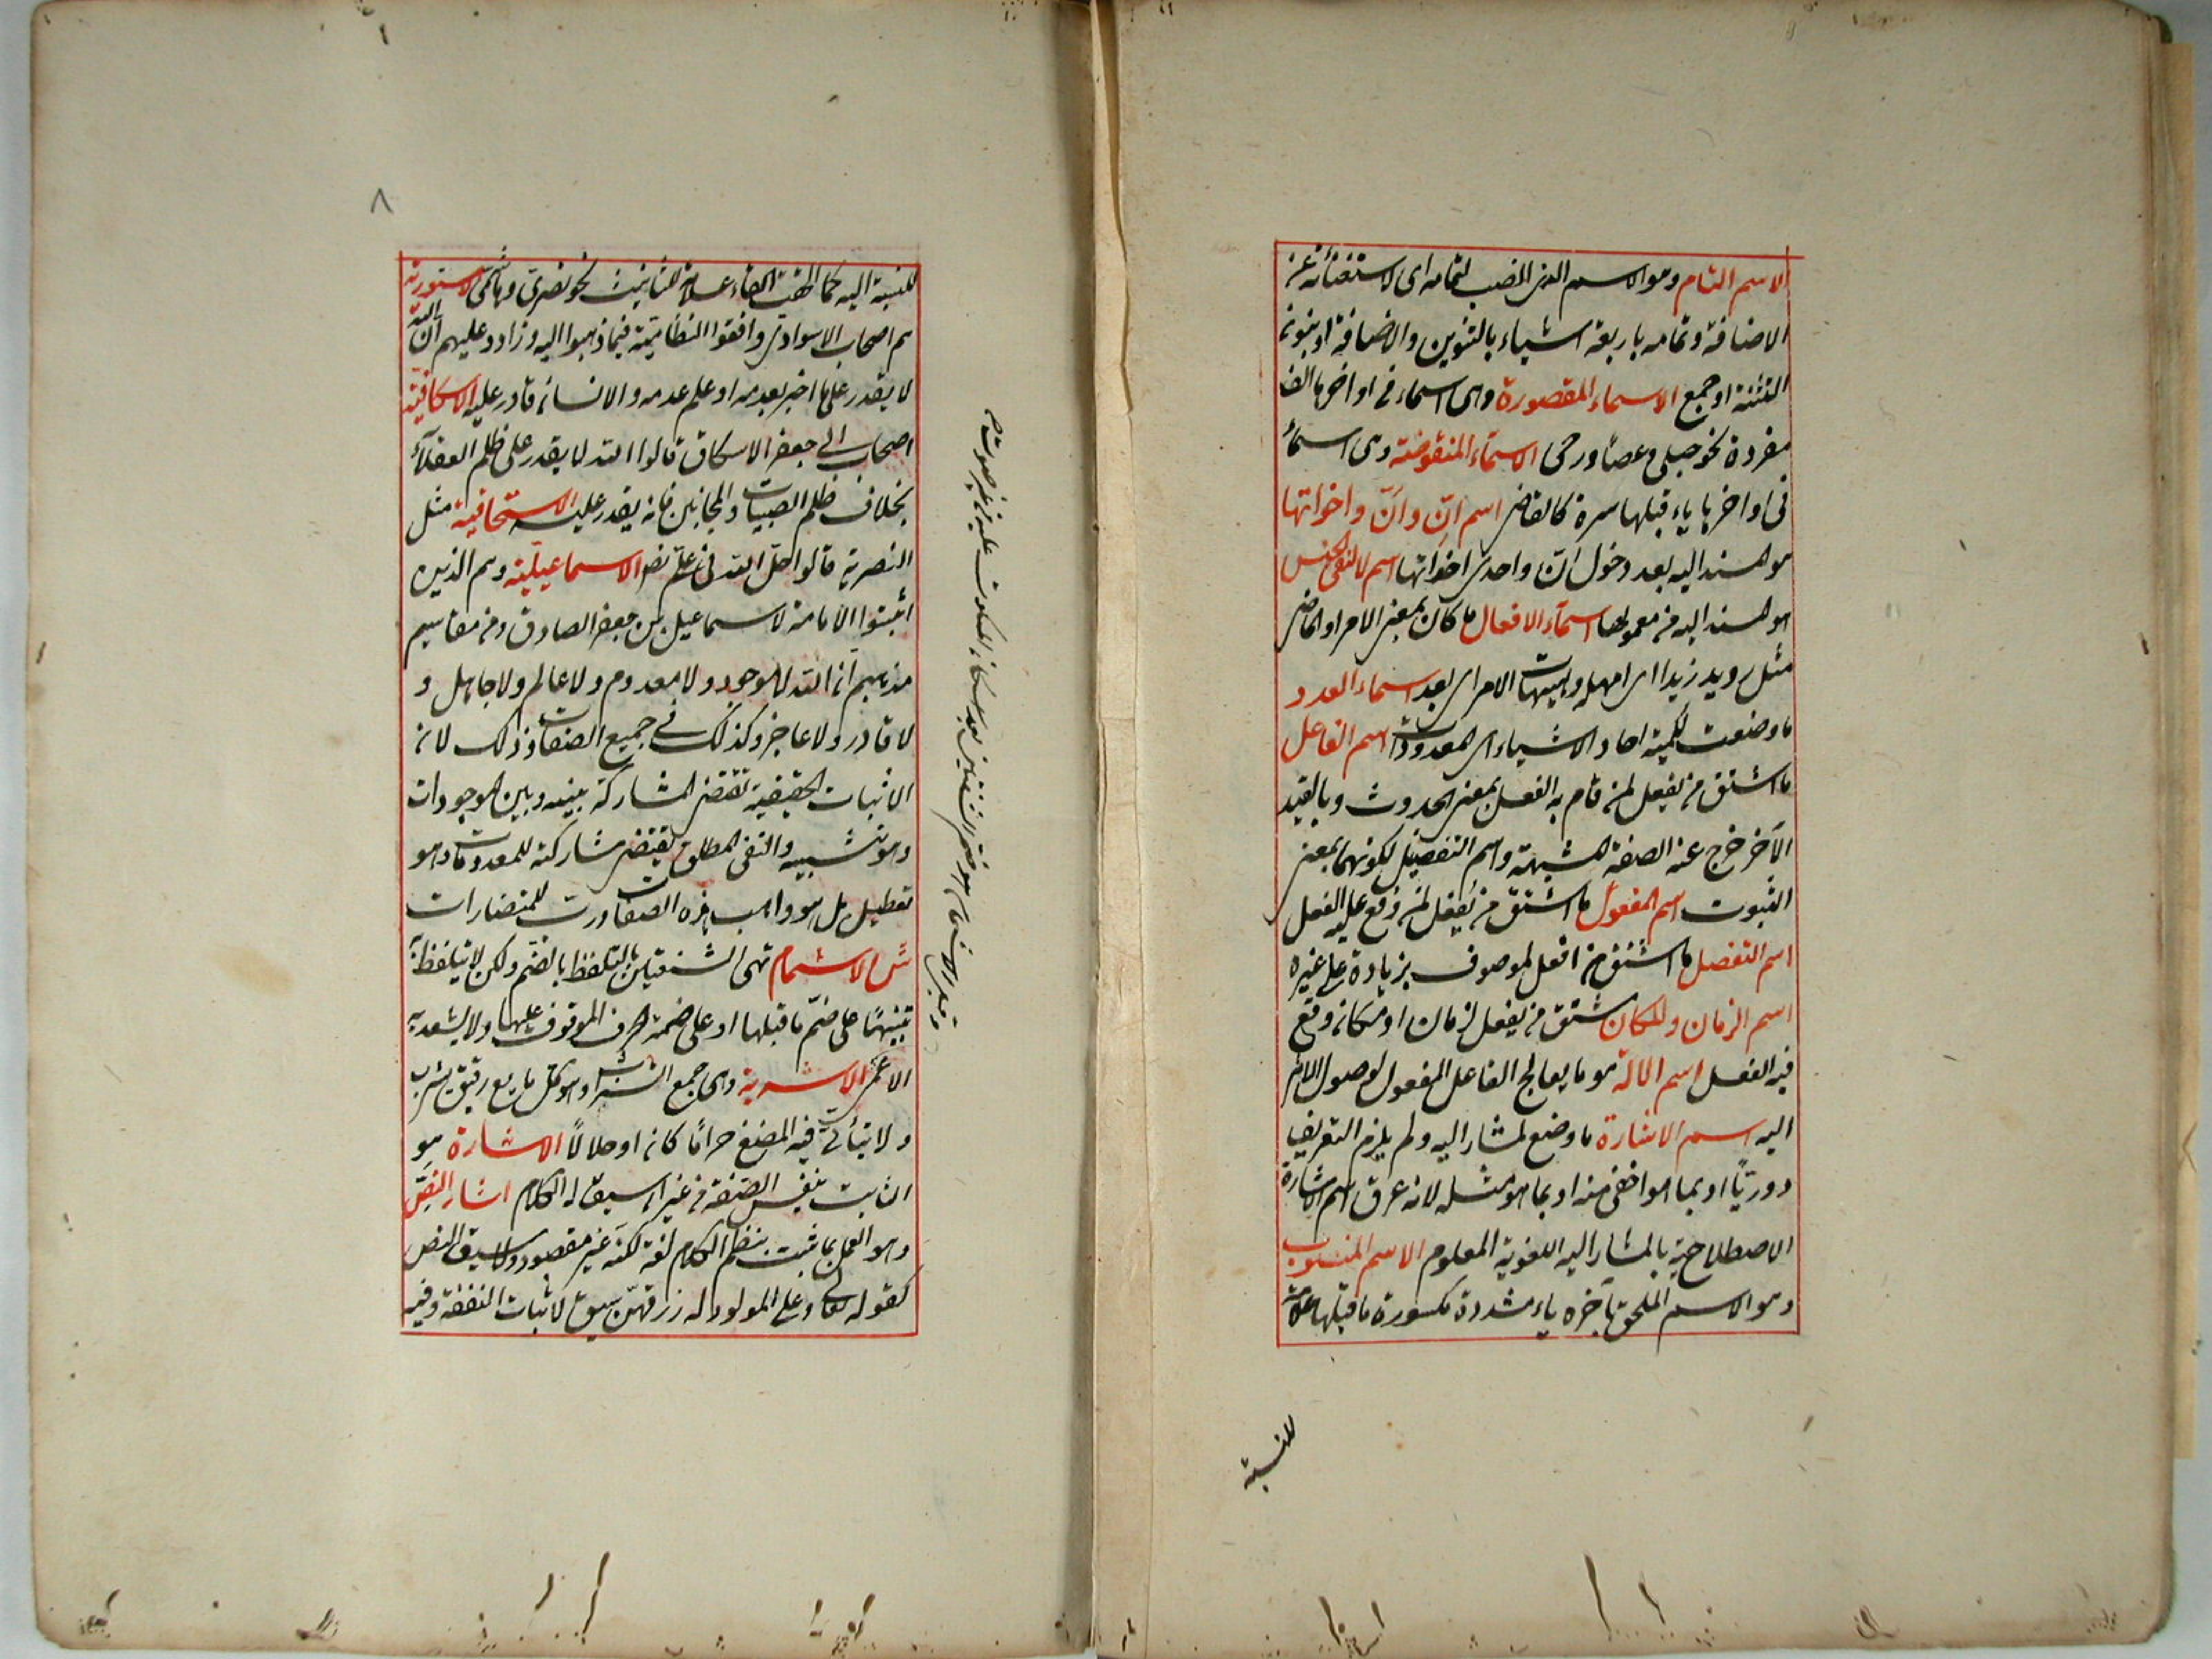 الاسم التام وهو الاسم الذى المنصب لتمامه اى لاستغنائه عن
الاضافة وتمامه باربعة اشياء بالتنوين والاضافة او بنون
التثنية او جمع الاسماء المقصورة وهى اسماء فى اواخرها الف
مفردة نحو حبلى وعصا ورحى الاسماء المنقوصة وهى اسماء
فى اواخرها ياء قبلها كسرة كالقاضى اسم انّ وانّ واخواتها
هو المسند اليه بعد دخول انّ واحدى اخواتها اسم لا لنفى الجنس
هو المسند اليه من معمولها اسماء الافعال ما كان بمعنى الامر او الماضى
مثل رويد زيدا اى امهله وهيهات الامر اى بعد اسماء العدد
ما وضعت لكمية احاد الاشياء اى المعدودات اسم الفاعل
ما اشتق من يفعل لمن قام به الفعل بمعنى الحدوث وبالقيد
الاخر خرج عنه الصفة المشبهة واسم التفضيل لكونهما بمعنى
الثبوت اسم المفعول ما اشتق من يفعل لمن وقع عليه الفعل
اسم التفضل ما اشتق من افعل لموصوف بزيادة على غيره
اسم الزمان والمكان مشتق من يفعل لزمان او مكان وقع
فيه الفعل اسم الالة هو ما يعالج الفاعل المفعول لوصول الاثر
اليه اسم الاشارة ما وضع لمشار اليه ولم يلزم التعريف
دوريًا او بما هو اخفى منه او بما هو مثله لانه عرف اسم الاشارة
الاصطلاحية بالمشار اليه اللغوية المعلوم الاسم المنسوب
وهو الاسم الملحق باخره ياء مشددة مكسورة ما قبلها علامة
للنسبة
٨
للنسبة اليه كما الحقت التاء علامة للتانيث نحو بصرىّ وهاشمىّ الاسوارية
هم اصحاب الاسوارى وافقوا النظامية فيما ذهبوا اليه وزادو عليهم انّ الله
لا يقدر على ما اخبر بعدمه او علم عدمه والانسان قادر عليه الاسكافية
اصحاب ابى جعفر الاسكاف قالوا الله لا يقدر على ظلم العقلاء
بخلاف ظلم الصبيان والمجانين فانه يقدر عليه الاسحاقية مثل
النصرية قالوا حلّ الله فى علىّ الاسماعيلية وهم الذين
اثبتوا الامامة لاسماعيل بن جعفر الصادق ومن
مذهبهم ان الله لا موجود ولا معدوم ولا عالم ولا جاهل و
لا قادر ولا عاجز وكذلك فى جميع الصفات وذلك لان
الاثبات الحقيقية تقتضى المشاركة بينه وبين الموجودات
وهو تشبيه والنفى المطلق يقتضى مشاركته للمعدومات وهو
تعطيل بل هو واهب هذه الصفات ورب للمتضادات
ش الاشمام تهى الشفتين بالتلفظ بالضم ولكن لا يتلفظ به
تنبيهًا على ضمّ ما قبلها او على ضمة الحرف الموقوف عليها ولا يشعر به
الاعمى الاشربة وهى جمع الشراب وهو كل مايع رقيق يشرب
ولا يتأتى فيه المضغ حرامًا كان او حلالًا الاشارة هو
الثابت بنفس الصيغة من غير ان سيق له الكلام اشار النص
وهو العمل بما ثبت بنظم الكلام لغة لكنه غير مقصود ولا سيق النص
كقوله تعالى وعلى المولود له رزقهن سيق لاثبات النفقة وفيه